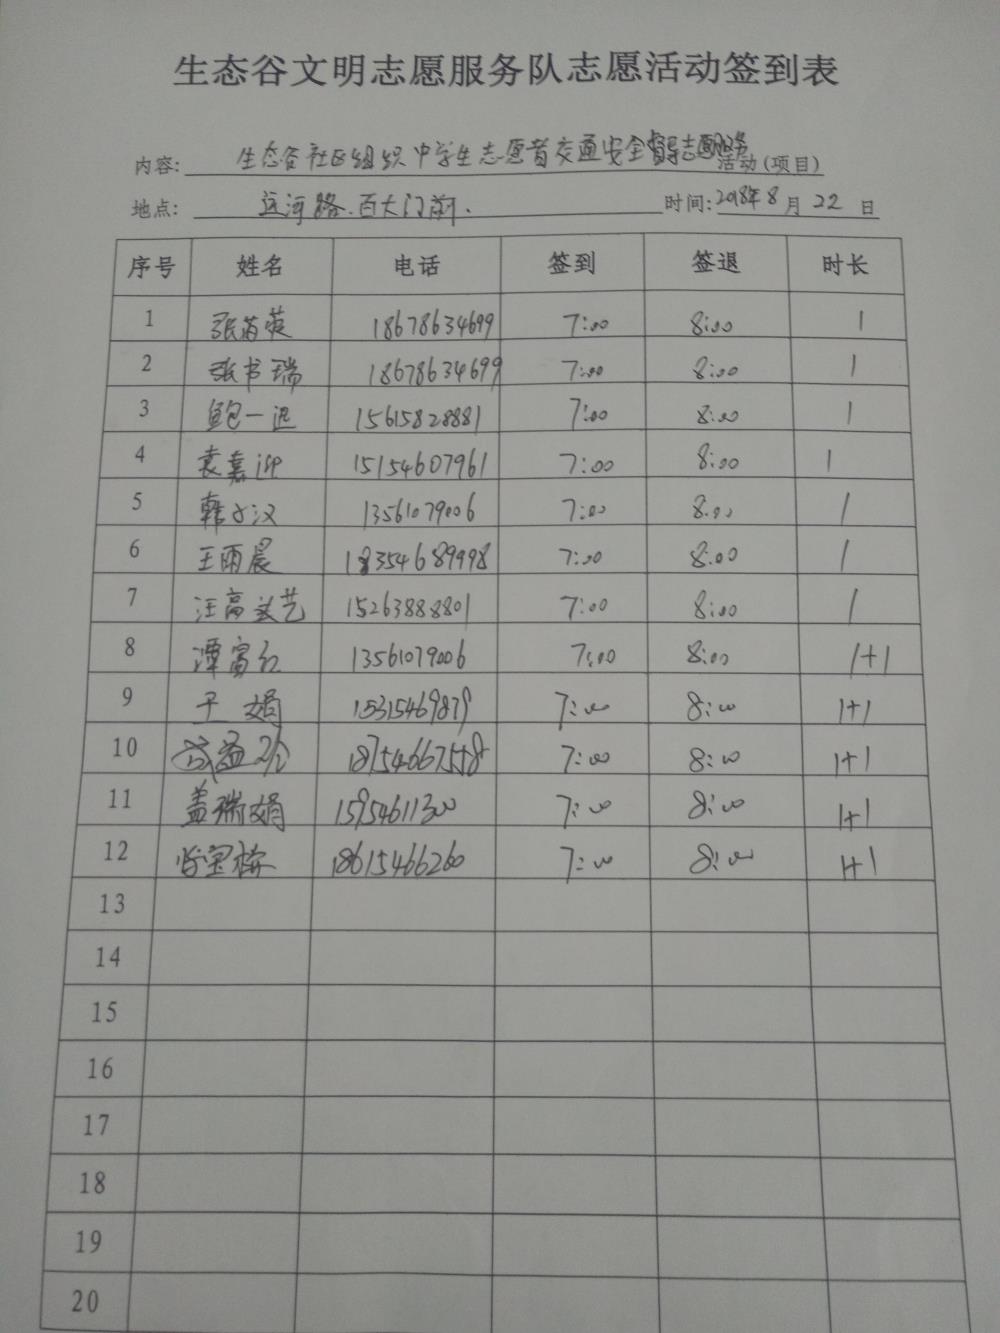 生态谷文明志愿服务队志愿活动签到表
内容: 生态谷社区组织中学生志愿者交通安全督导志愿服务 活动(项目)
地点: 运河路.百大门前. 时间: 2018年8月22日
序号 姓名 电话 签到 签退 时长
1 张 18678634699 7:00 8:00 1
2 张书瑞 18678634699 7:00 8:00 1
3 鲍一迅 15615828881 7:00 8:00 1
4 袁嘉 15154607961 7:00 8:00 1
5 韩子汉 13561079006 7:00 8:00 1
6 王雨晨 18354689998 7:00 8:00 1
7 汪高 艺 15263888801 7:00 8:00 1
8 谭富红 13561079006 7:00 8:00 1+1
9 王娟 15315469879 7:00 8:00 1+1
10 18754667558 7:00 8:00 1+1
11 盖瑞娟 15954611300 7:00 8:00 1+1
12 宝 18615466260 7:00 8:00 1+1
13
14
15
16
17
18
19
20